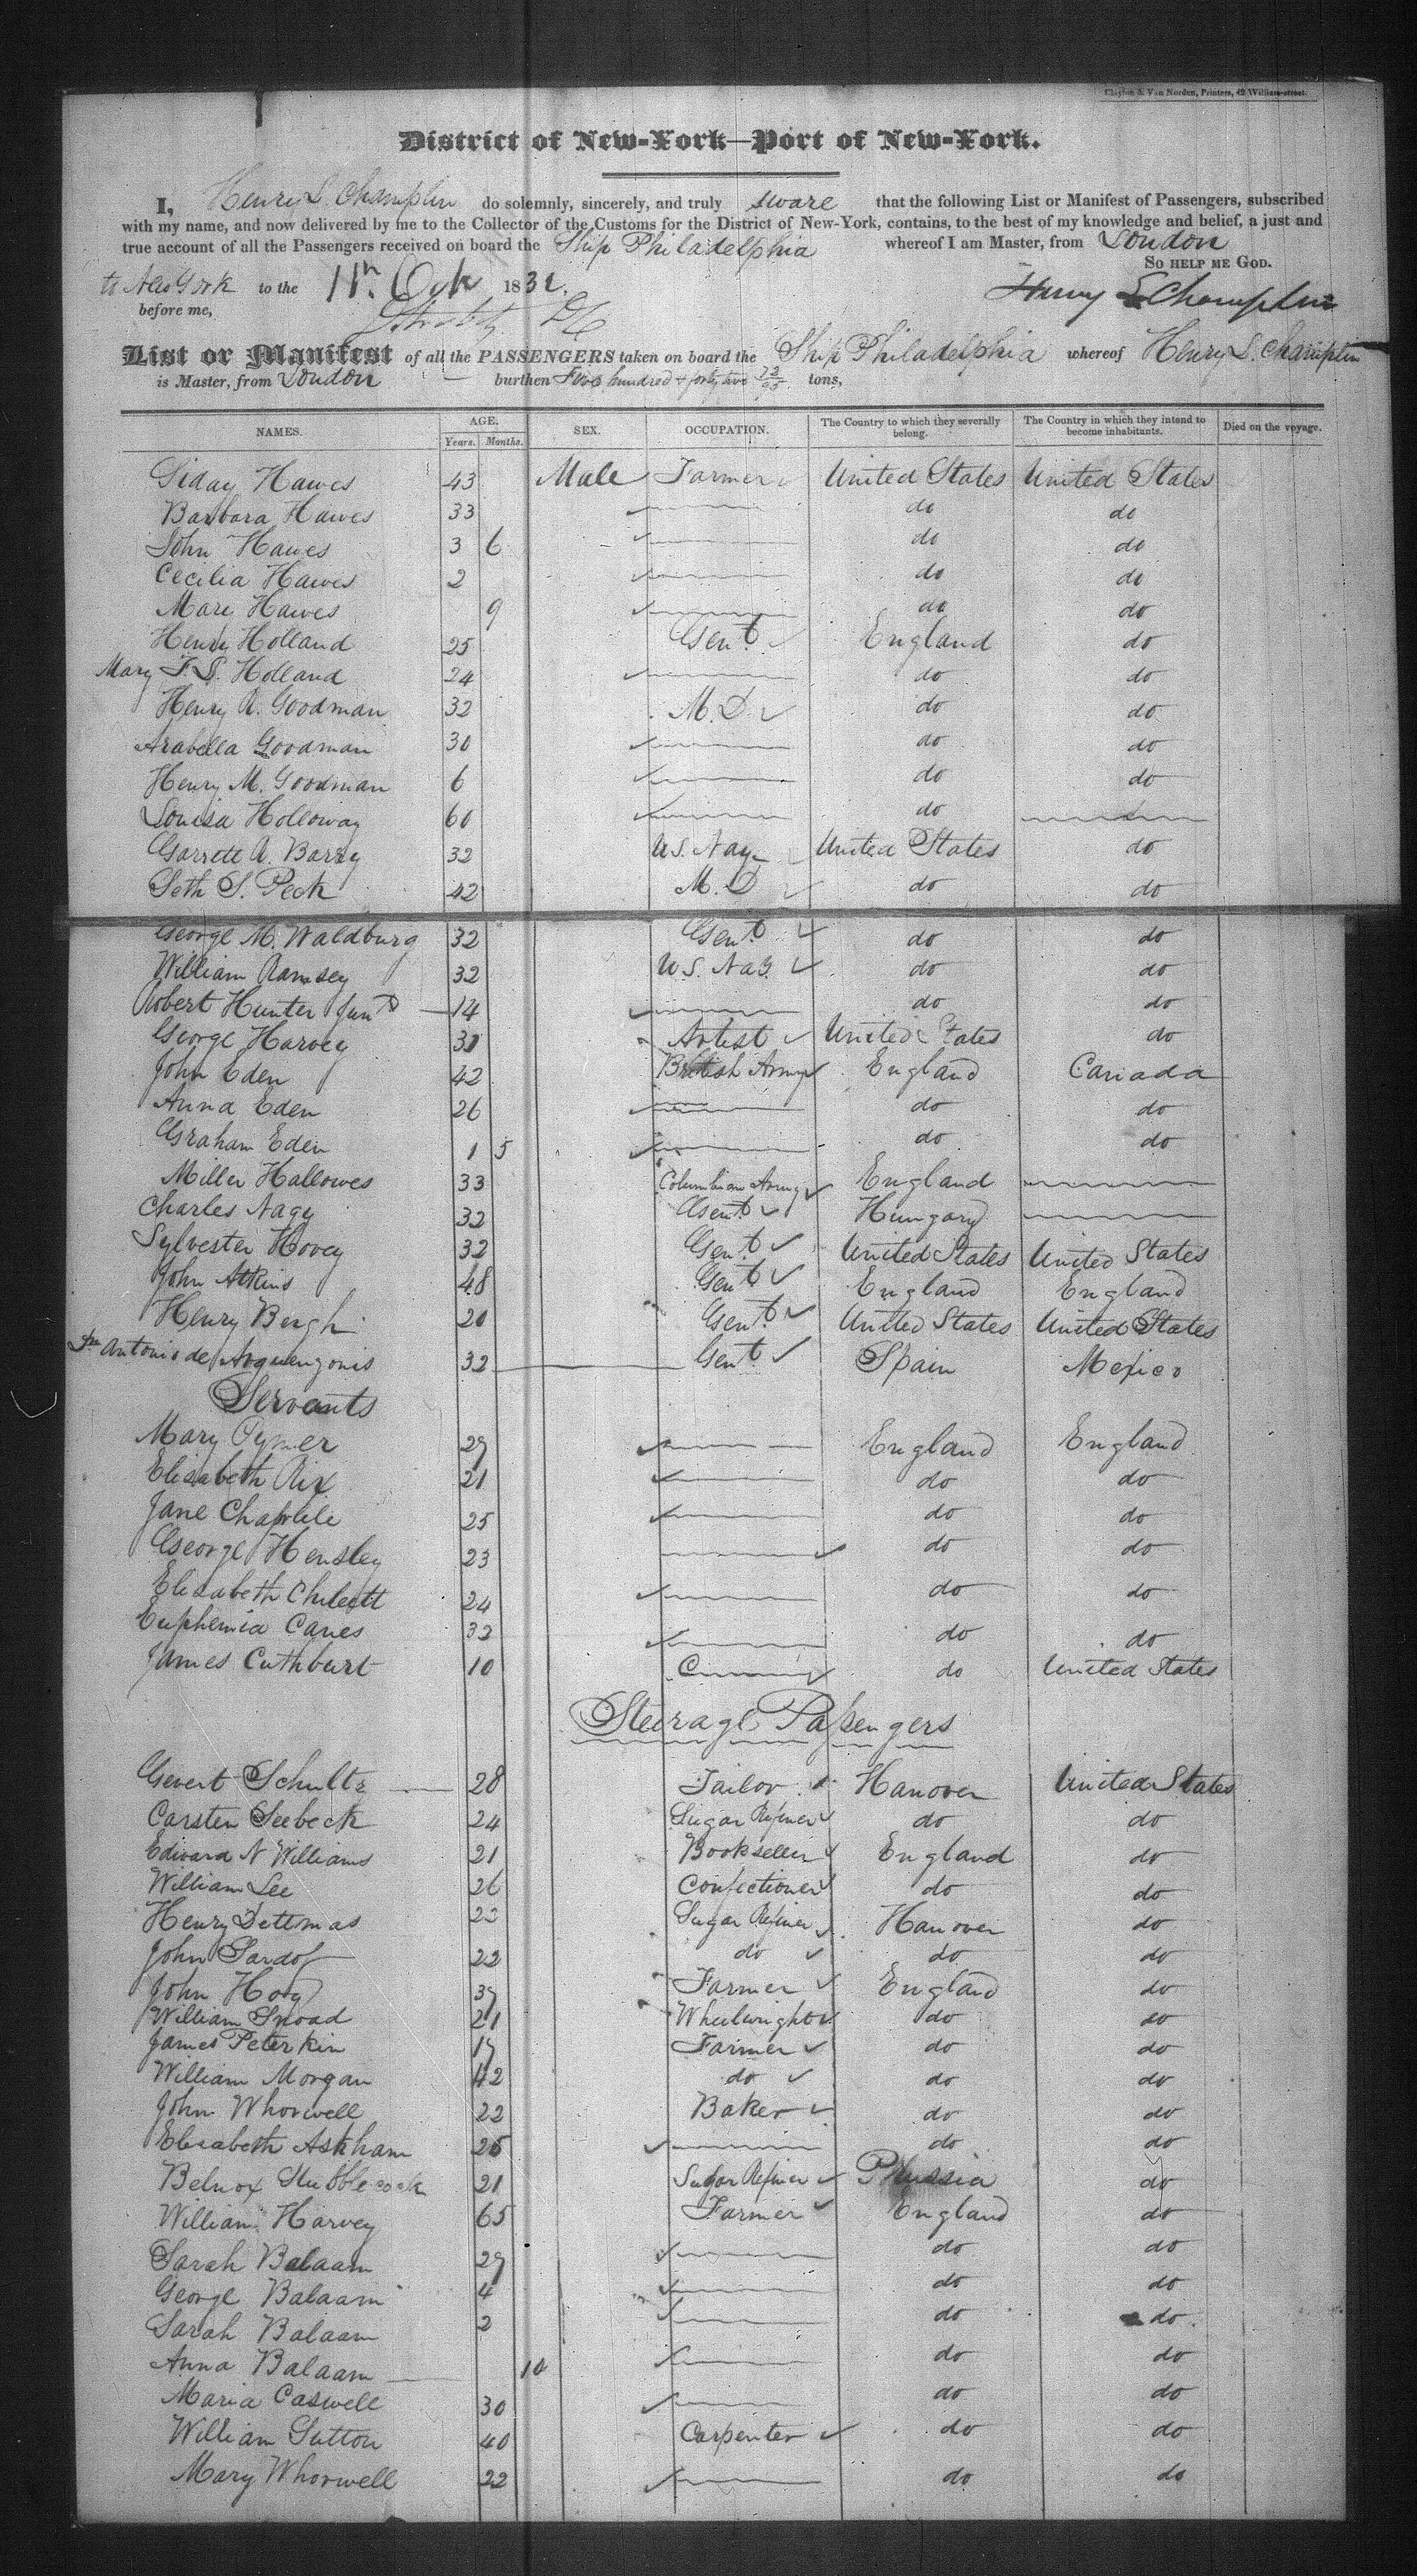 Clayton & Van Norden, Printers, 42 William-street.
District of New-York—Port of New-York.
I, Henry L. Champlin do solemnly, sincerely, and truly sware that the following List or Manifest of Passengers, subscribed
with my name, and now delivered by me to the Collector of the Customs for the District of New-York, contains, to the best of my knowledge and belief, a just and
true account of all the Passengers received on board the Ship Philadelphia whereof I am Master, from London
to New York to the 11th Octr 1832. So help me God.
before me, Henry L Champlin
List or Manifest of all the PASSENGERS taken on board the Ship Philadelphia whereof Henry L. Champlin
is Master, from London burthen Five hundred & forty two 73/95 tons,
NAMES. AGE. Years. Months. SEX. OCCUPATION. The Country to which they severally belong. The Country in which they intend to become inhabitants. Died on the voyage.
Hawes 43 Male Farmer United States United States
Barbara Hawes 33 do do
John Hawes 3 6 do do
Cecilia Hawes 2 do do
Mare Hawes 9 do do
Henry Holland 25 Gent. England do
Mary F. S. Holland 24 do do
Henry A. Goodman 32 M.D. do do
Arabella Goodman 30 do do
Henry M. Goodman 6 do do
Louisa Holloway 60 do
Garrett A. Barry 32 U.S. Nay United States do
Seth S. Peck 42 M.D do do
George M. Waldburg 32 Gent. do do
William Ramsey 32 U.S. Nay. do do
Robert Hunter Junr 14 do do
George Harvey 31 Artist United States do
John Eden 42 British Army England Canada
Anna Eden 26 do do
Graham Eden 1 5 do do
Miller Hallowes 33 Columbian Army England
Charles Nagy 32 Gent. Hungary
Sylvester Hovey 32 Gent. United States United States
John Atkins 48 Gent. England England
Henry Bergh 20 Gent. United States United States
Antonio de 32 Gent. Spain Mexico
Servants
Mary Pymer 29 England England
Elisabeth Rix 21 do do
Jane Chaplele 25 do do
George Hensley 23 do do
Elisabeth Chilcott 24 do do
Euphemia Canes 32 do do
James Cuthburt 10 do United States
Steerage Passengers
Gevert Schultz 28 Tailor Hanover United States
Carsten Seebeck 24 Sugar Refiner do do
Edward N Williams 21 Bookseller England do
William Lee 26 Confectioner do do
Henry Dettmas 22 Sugar Refiner Hanover do
John Sardof 22 do do do
John Hogg 39 Farmer England do
William Snoad 21 Wheelwright do do
James Peterkin 19 Farmer do do
William Morgan 42 do do do
John Whorwell 22 Baker do do
Elisabeth Askham 25 do do
Stubblecock 21 Sugar Refiner Prussia do
William Harvey 65 Farmer England do
Sarah Balaam 29 do do
George Balaam 4 do do
Sarah Balaam 2 do do
Anna Balaam 10 do do
Maria Caswell 30 do do
William Sutton 40 Carpenter do do
Mary Whorwell 22 do do